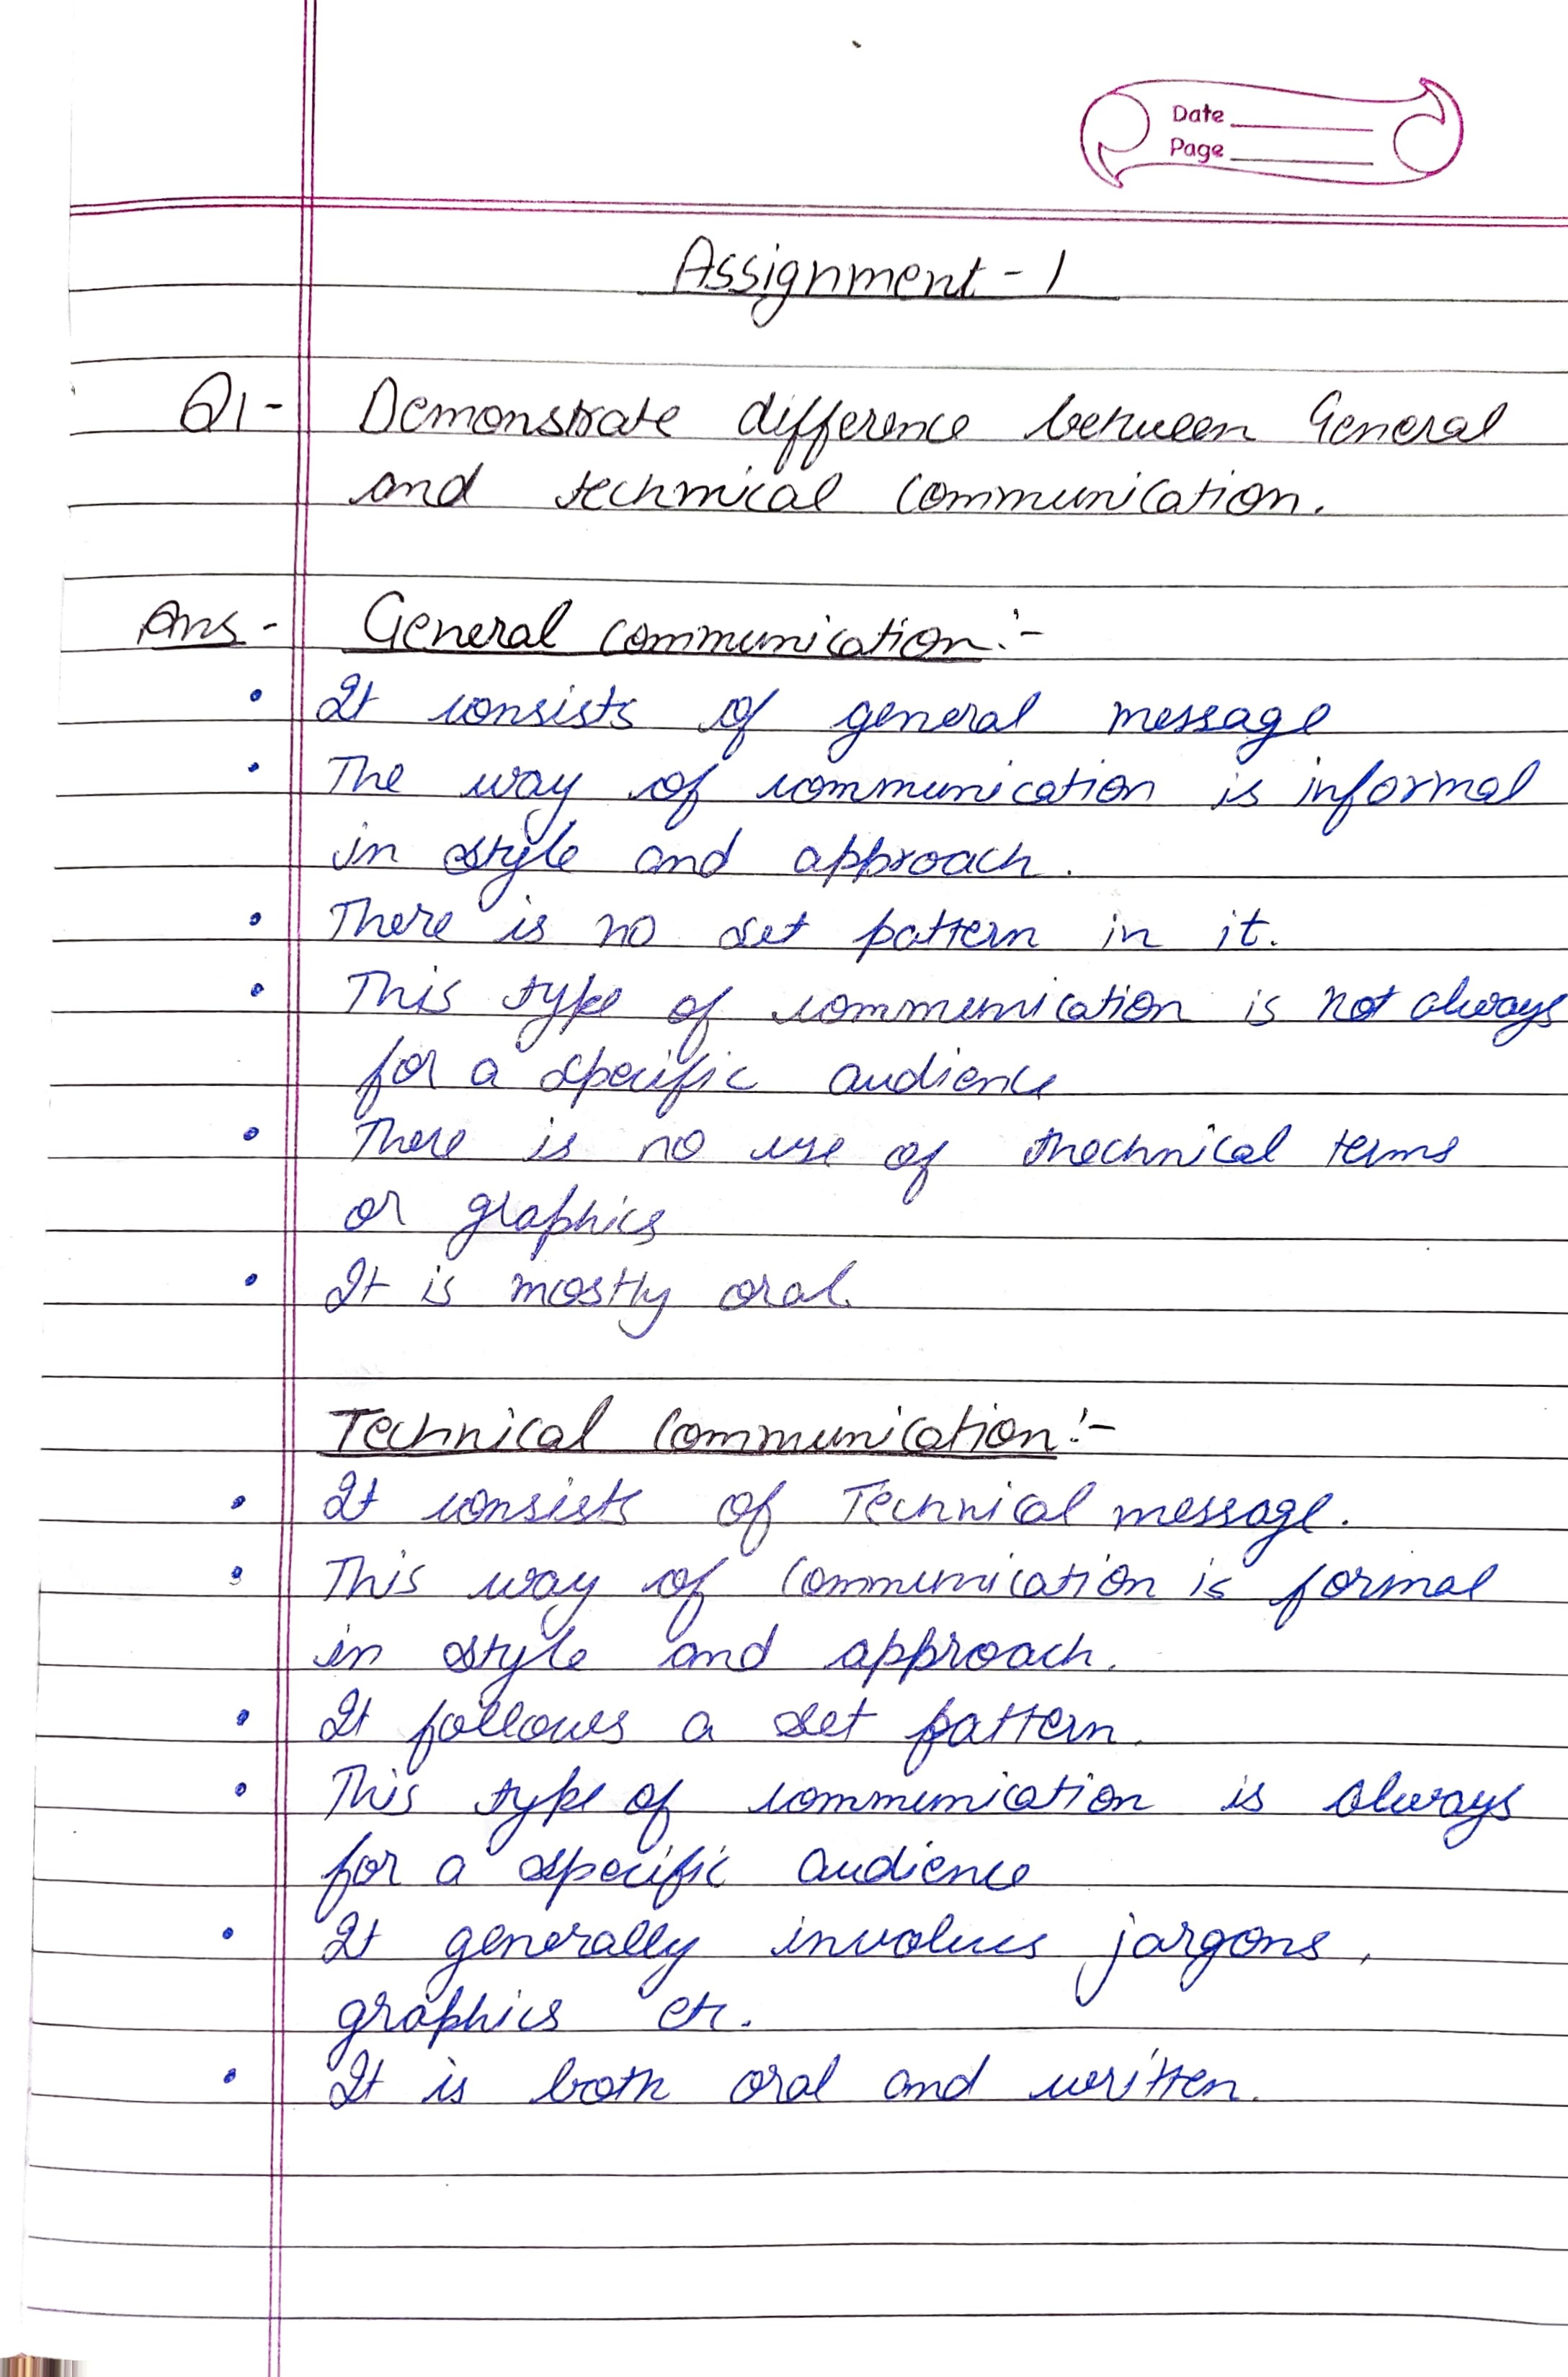 Date
Page
Assignment - 1
Q1- Demonstrate difference between General
and technical communication.
Ans - General communication:-
• It consists of general message
• The way of communication is informal
in style and approach.
• There is no set pattern in it.
• This type of communication is not always
for a specific audience
• There is no use of thechnical terms
or graphics
• It is mostly oral.
Technical Communication:-
• It consists of Technical message.
• This way of Communication is formal
in style and approach.
• It follows a set pattern.
• This type of communication is always
for a specific audience
• It generally involves jargons,
graphics etc.
• It is both oral and written.